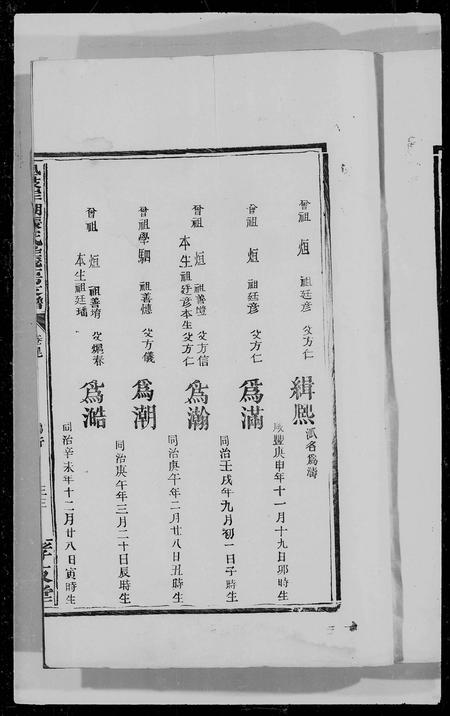 曾祖 烜 祖廷彦 父方仁
緝熙 派名為濤
咸豐庚申年十一月十九日卯時生
曾祖 烜 祖廷彦 父方仁
為滿
同治壬戌年九月初一日子時生
曾祖 烜 祖善 父方信
本生祖廷彦本生父方仁
為瀚
同治庚午年二月廿八日丑時生
曾祖學駉 祖善 父方儀
為潮
同治庚午年三月二十日辰時生
曾祖 烜 祖善堉 父 春
本生祖廷璠
為澔
同治辛未年十二月廿八日寅時生